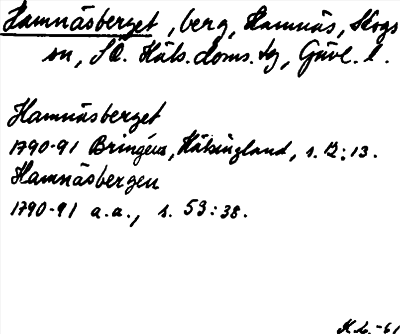 Hamnäsberget, berg, Hamnäs, Skogs
sn, SÖ. Häls. doms. tg, Gävl. l.
Hamnäsberget
1790-91 Bringéus, Hälsingland, s. 12:13.
Hamnäsbergen
1790-91 a.a., s. 53:38.
K.L.-61